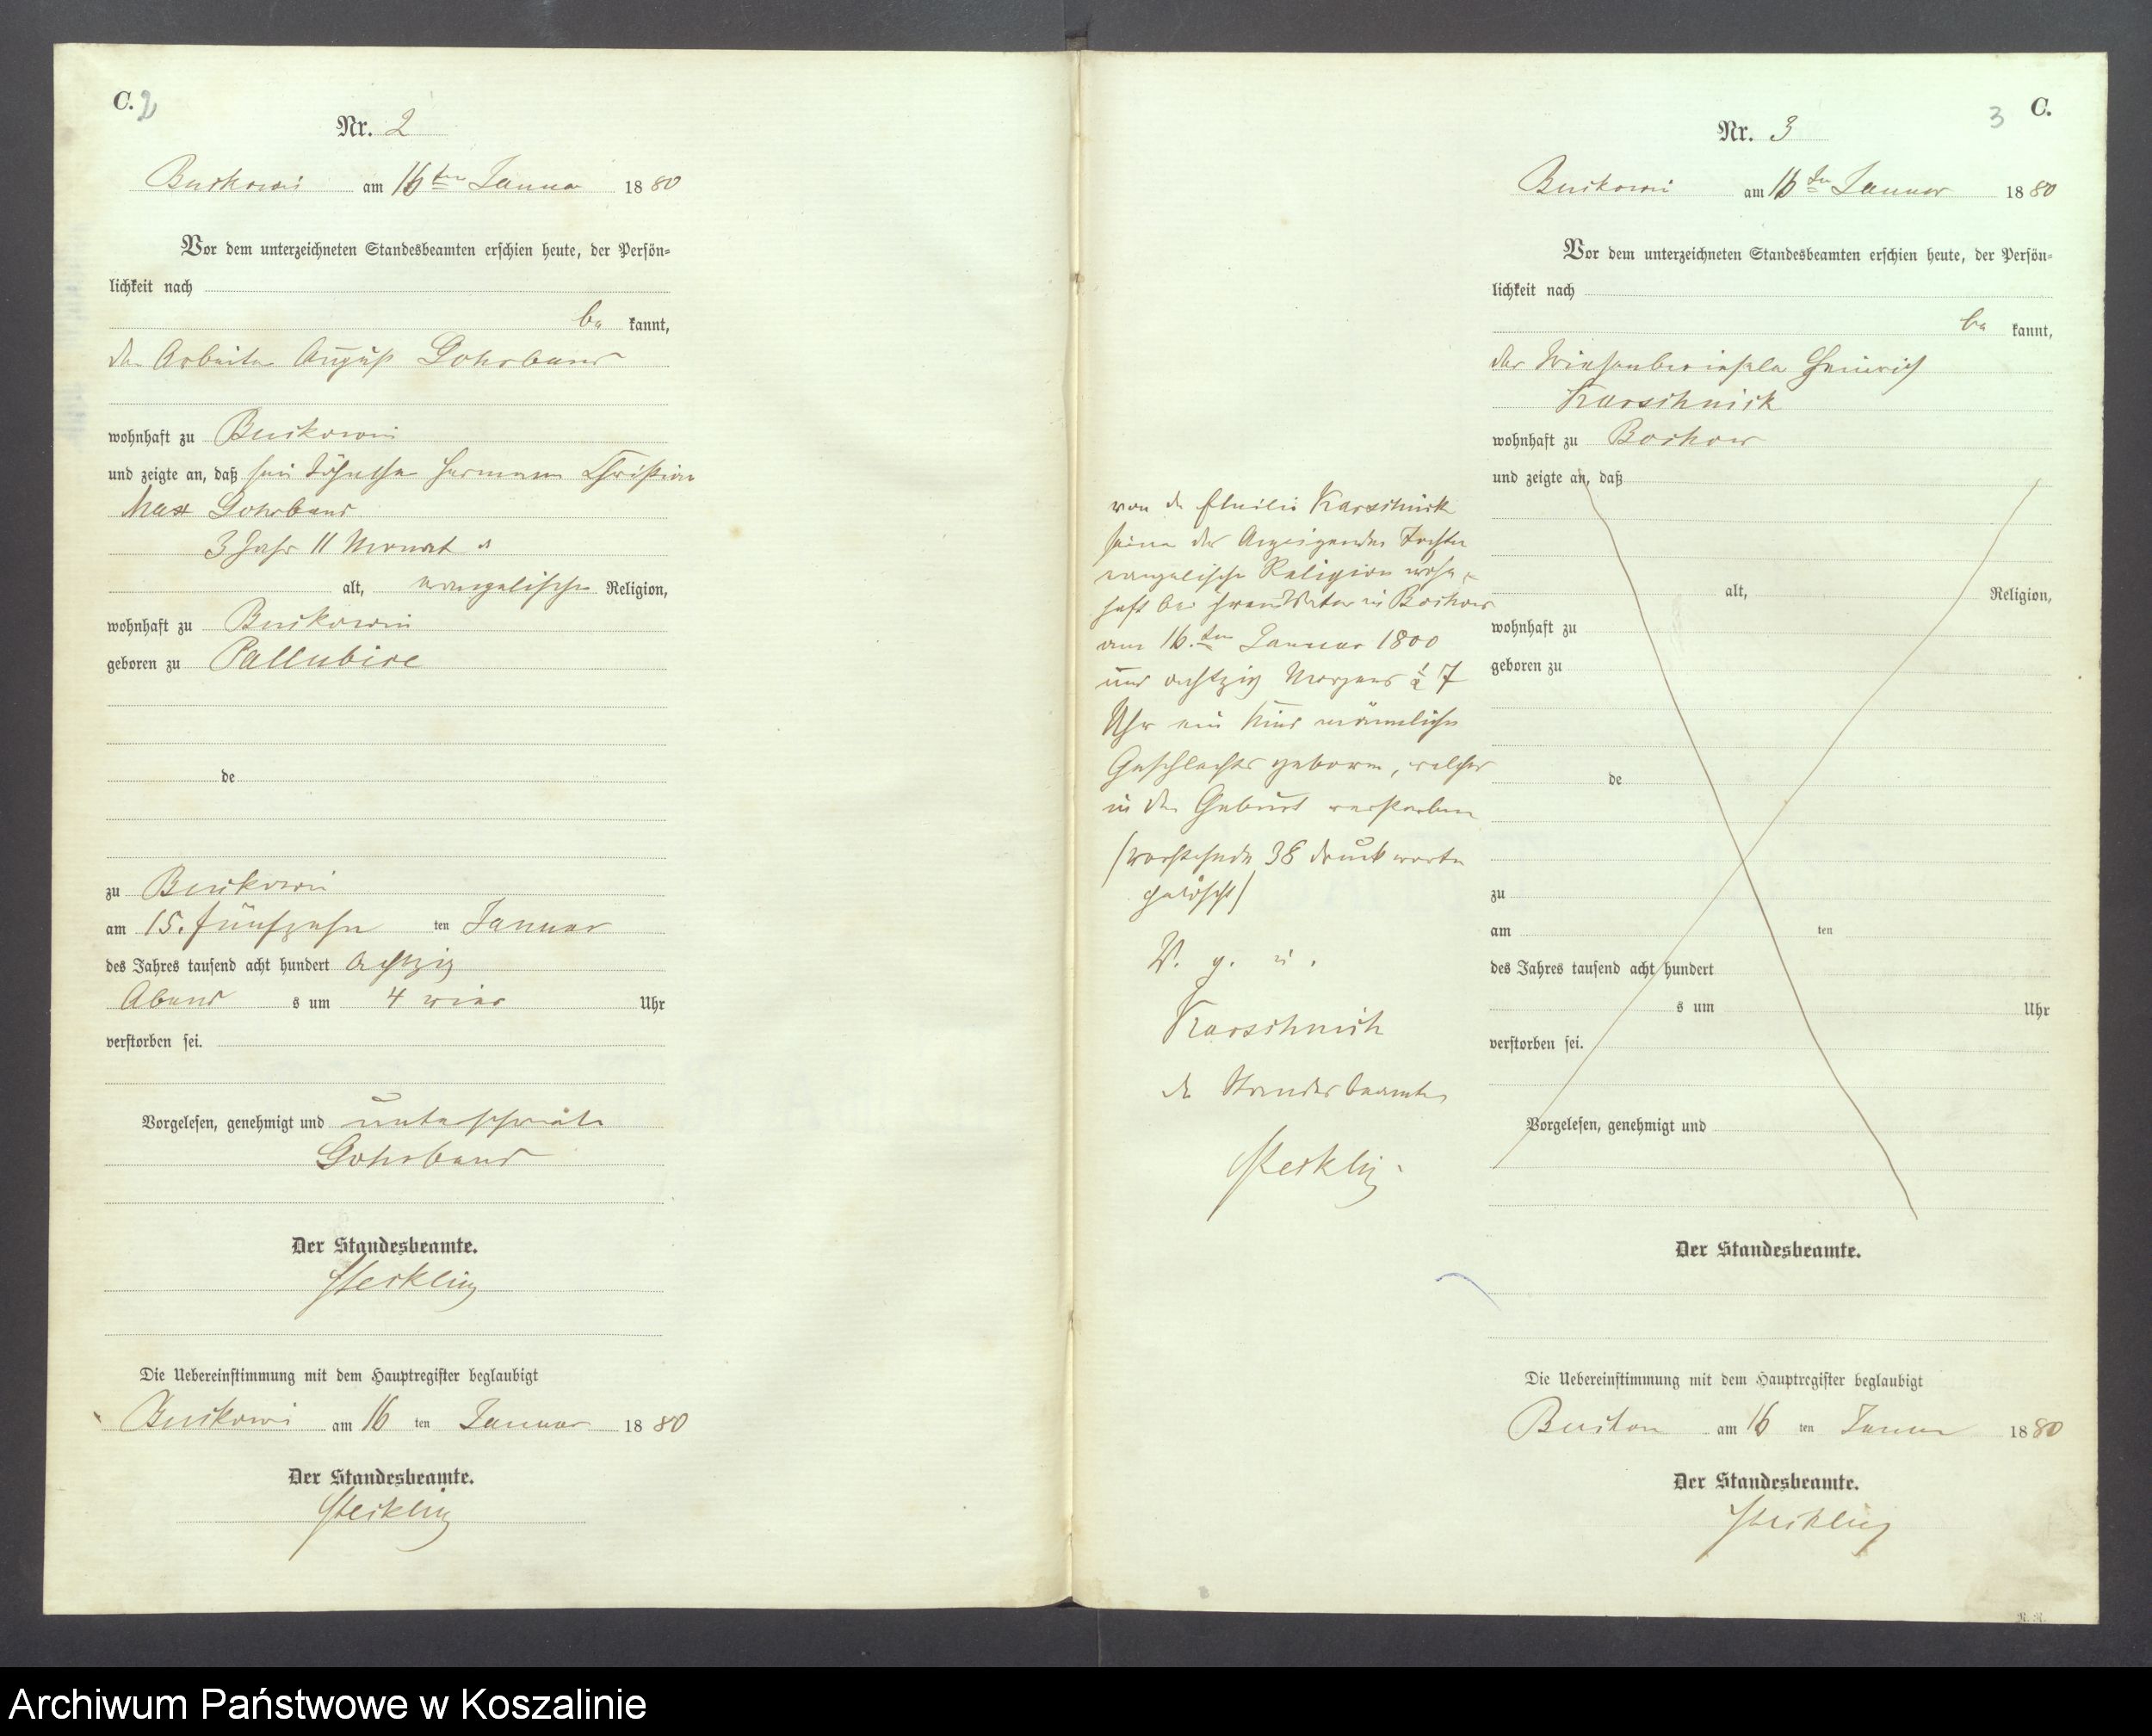 C. 2
Nr. 2
Buckowin am 16ten Januar 1880
Vor dem unterzeichneten Standesbeamten erschien heute, der Persön=
lichkeit nach
be kannt,
der Arbeiter August Gohrband
wohnhaft zu Buckowin
und zeigte an, daß sein Söhnchen Hermann Christian
Max Gohrband
3 Jahr 11 Monat
alt, evangelischer Religion,
wohnhaft zu Buckowin
geboren zu Pallubice
de
zu Buckowin
am 15. fünfzehn ten Januar
des Jahres tausend acht hundert achtzig
Abend s um 4 vier Uhr
verstorben sei.
Vorgelesen, genehmigt und unterschrieben
Gohrband
Der Standesbeamte.
Steckling
Die Uebereinstimmung mit dem Hauptregister beglaubigt
Buckowin am 16 ten Januar 1880
Der Standesbeamte.
Steckling
3 C.
Nr. 3
Buckowin am 16ten Januar 1880
Vor dem unterzeichneten Standesbeamten erschien heute, der Persön=
lichkeit nach
be kannt,
der Heinrich
Karschnick
wohnhaft zu Bochow
und zeigte an, daß
von der Emilie Karschnick
seine des Anzeigenden Tochter
evangelische Religion wohn-
haft bei ihrem Vater in Bochow
am 16.ten Januar 1800
und achtzig Morgens ½ 7
Uhr ein Kind männlichen
Geschlechts geboren, welches
in der Geburt verstorben
(vorstehende 38 druckworte
gelöscht)
V. g. u.
Karschnick
der Standesbeamte
Steckling
alt, Religion,
wohnhaft zu
geboren zu
de
zu
am ten
des Jahres tausend acht hundert
s um Uhr
verstorben sei.
Vorgelesen, genehmigt und
Der Standesbeamte.
Die Uebereinstimmung mit dem Hauptregister beglaubigt
am 16 ten Januar 1880
Der Standesbeamte.
Steckling
Archiwum Państwowe w Koszalinie